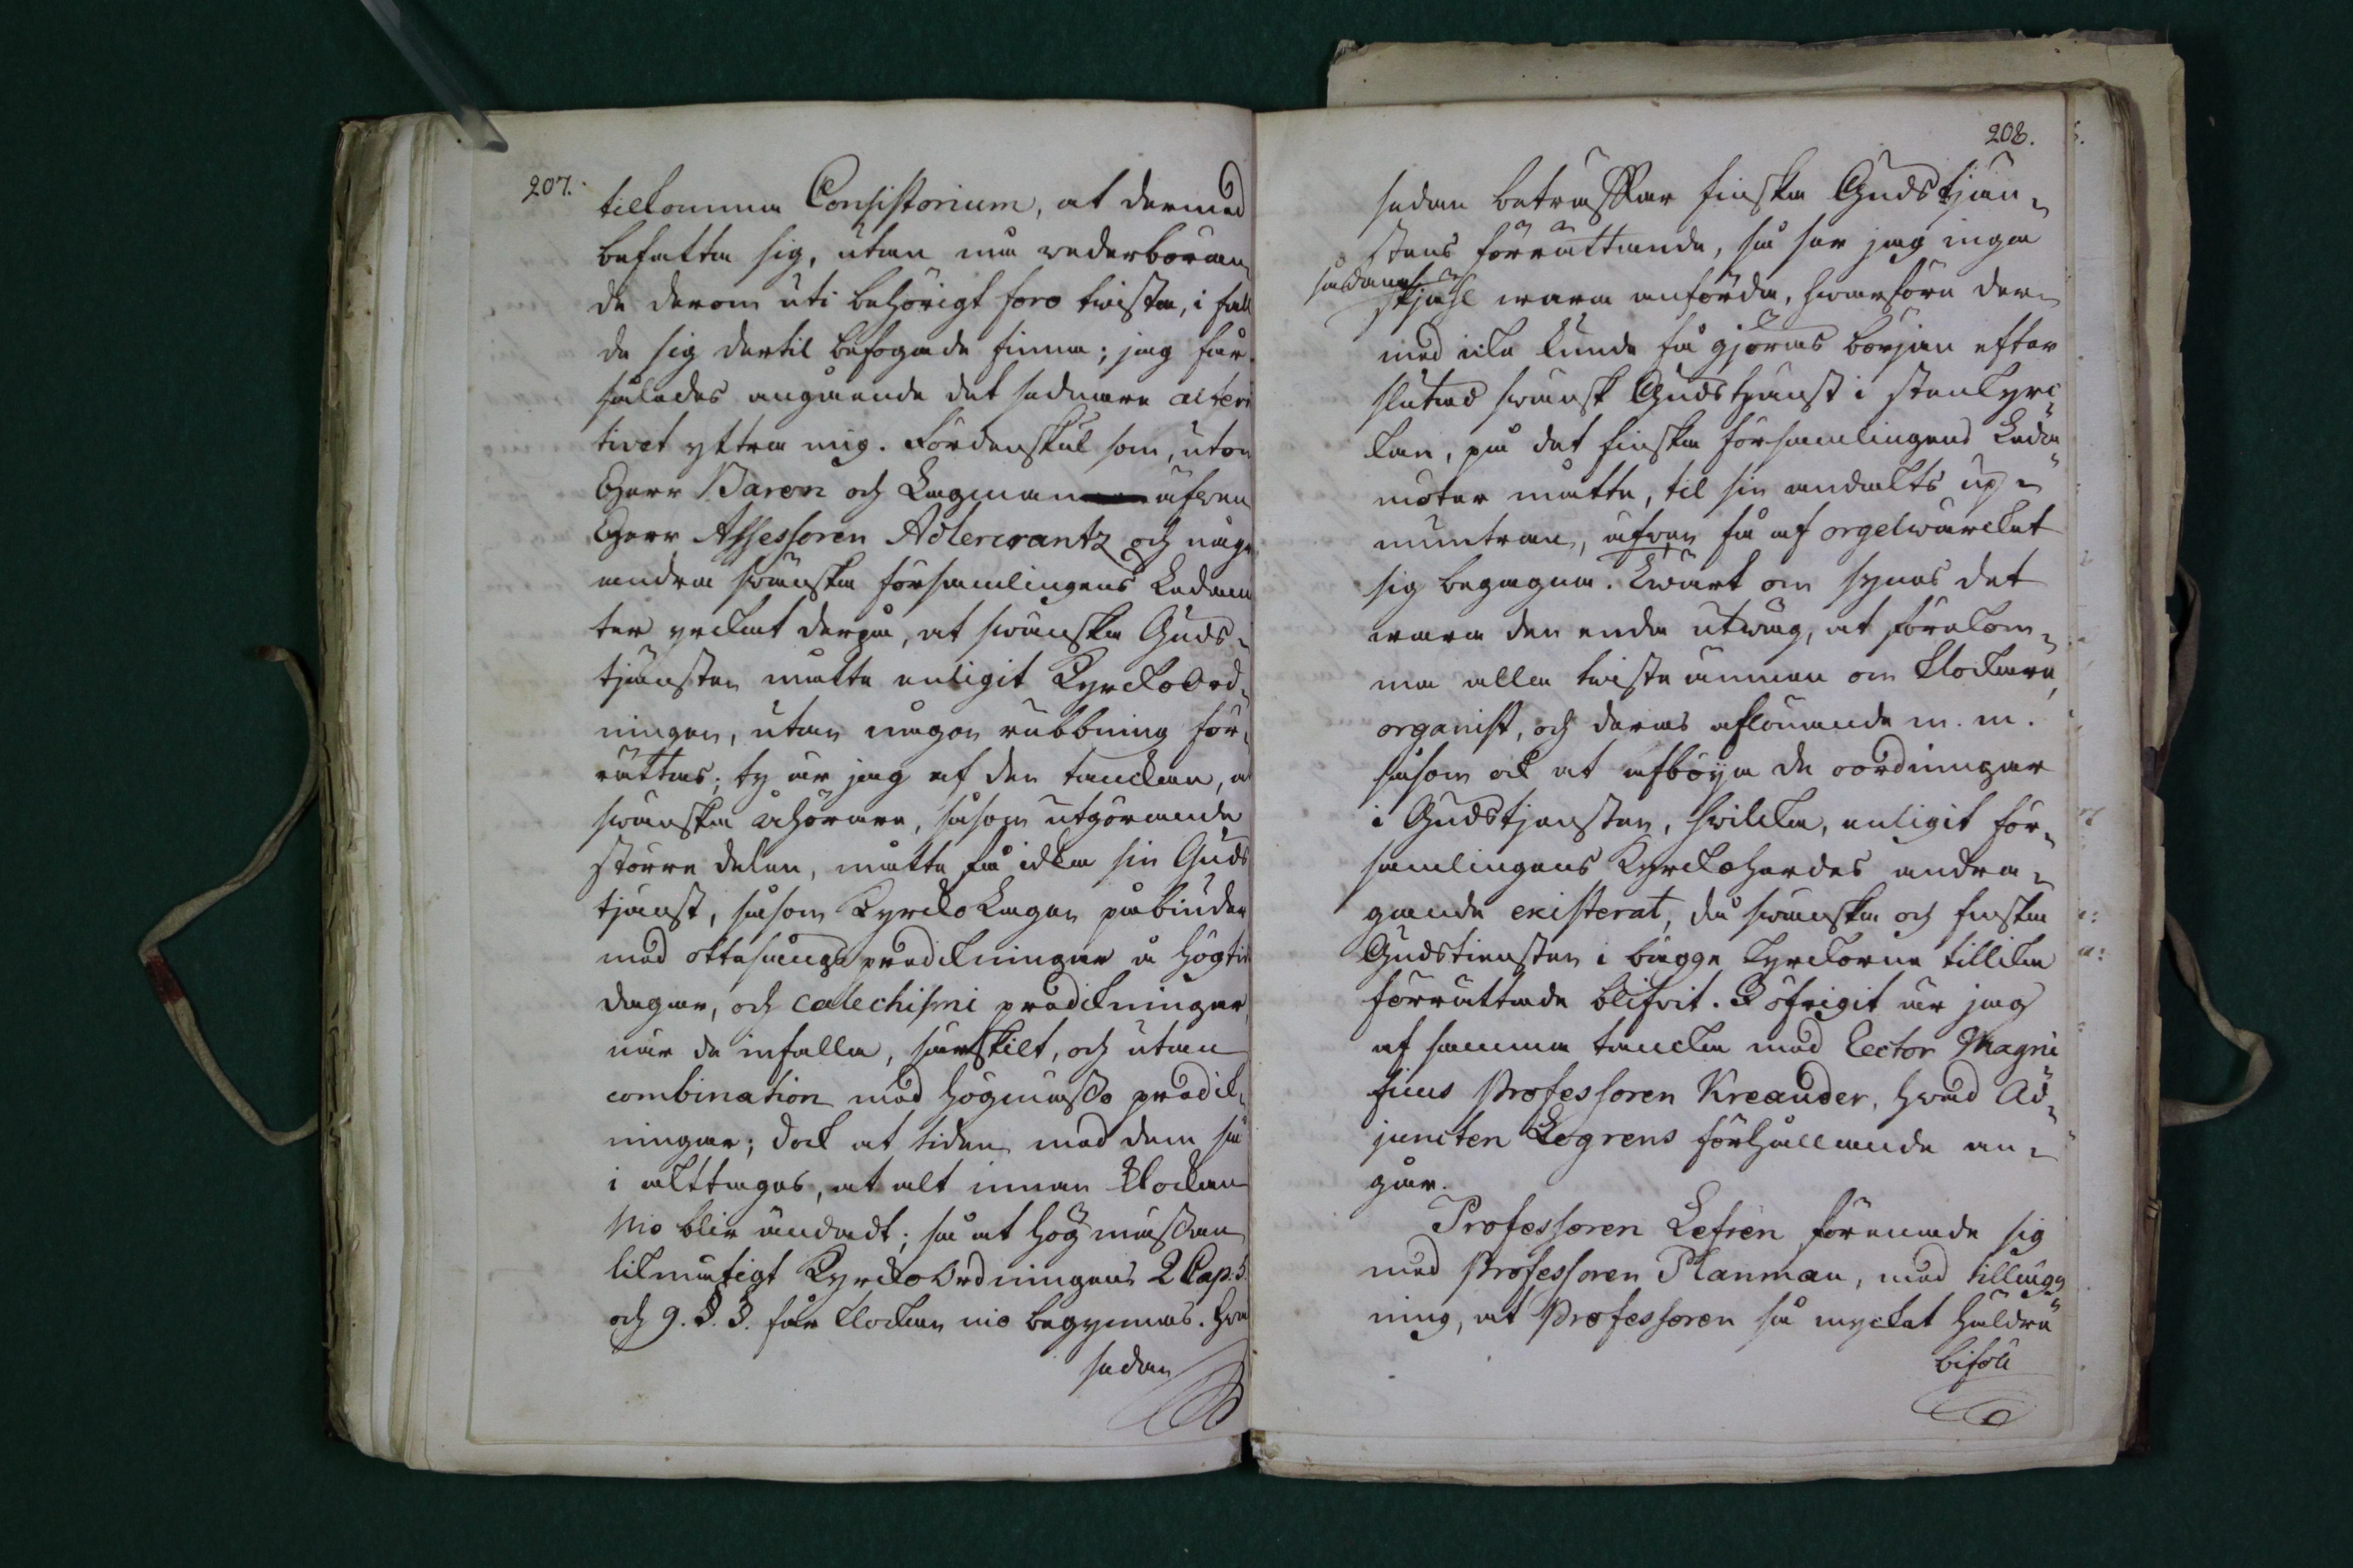 207.
tilkomma Consistorium, at dermed
befatta sig, utan må wederböran¬
de derom uti behörigt foro twista, i fall
de sig dertil befogade finna; jag får
således angående det sednare altern
tivet yttra mig. Fördenskul som, utom
Herr Baron och Lagman äfwen
Herr Assessoren Adlercrantz och någre
andra swänska församlingens Ledam
ter yrckat derpå, at swänska Guds¬
tjänsten måtte enligit KyrckoOrd¬
ningen, utan någon rubbning för¬
rättas; ty är jag af den tanckan, a
swänska åhörare, såsom utgörande
större delen, måtte få idka sin Guds
tjänst, såsom KyrckoLagen påbiuder
med ottesångs predickningar å högtid
dagar, och catechismi predickningar,
när de infalla, särskilt, och utan
combination med högmässo predick¬
ningar; dock at tiden med dem så
i akttages, at alt innan klockan
Nio blir ändadt; så at högmässan
likmätigt KyrckoOrdningens 2 Cap. 5.
och 9. §. §. får klockan nio begynnas. Hwa
sedan
208.
sedan beträffar finska Gudstjän¬
stens förrättande, så har jag inga
sådana
skjähl wara anförda, hwarföre der¬
med icke kunde få gjöras början efter
slutad swänsk Gudstjänst i stenkyrc¬
kan, på det finska församlingens Leda¬
moter måtte, til sin andackts up¬
muntran, äfwen få af orgelwärcket
sig begagna. Ewart om synes det
wara den enda utwäg, at förekom¬
ma alla twiste ämnen om klockare,
organist, och deras aflönande m. m.
såsom ock at afböja de oordningar
i Gudstjensten, hwilcka, enligit för¬
samlingens Kyrckoherdes andra¬
gande existerat, då swänska och finska
Gudstiensten i bägge kyrckorne tillika
förrättade blifvit. I öfrigit är jag
af samma tancka med Rector Magni
ficus Professoren Kreander, hwad Ad¬
juncten Legrens förhållande an¬
går.
Professoren Lefren förenade sig
med Professoren Planman, med tillägg
ning, at Professoren så mycket häldre
biföll